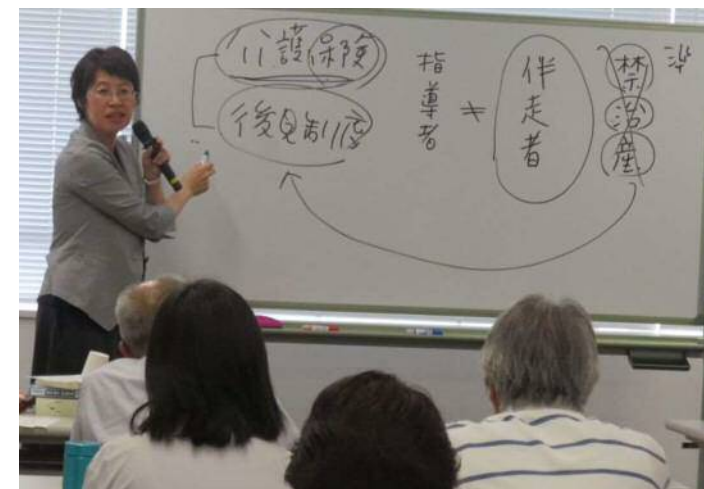 介護保険
後見制度
指導者
≠
伴走者
禁治産
準